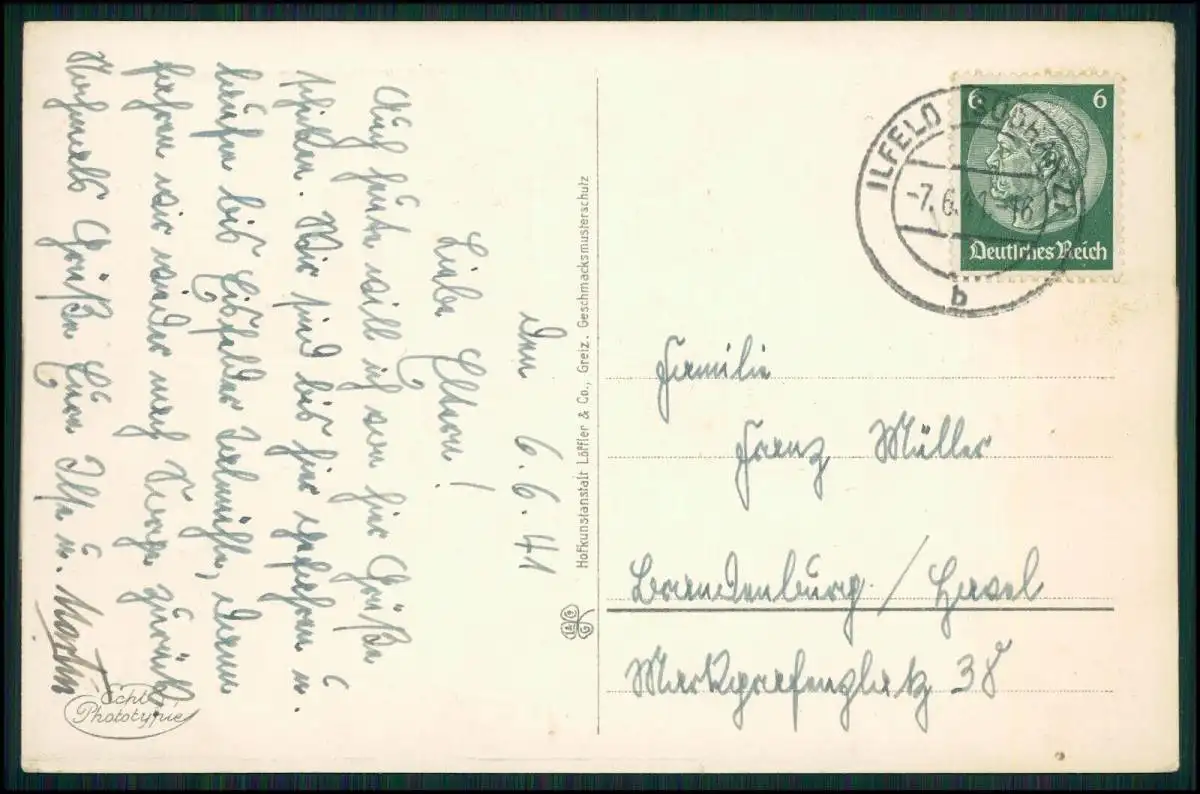 den 6.6.41
Liebe Eltern!
Auch heute will ich von hier Grüße
schicken. Wir sind bis hier gefahren u.
laufen bis Eisfelder Talmühle, dann
fahren wir wieder nach zurück.
Nochmals Grüße Eure Ilse u. Martin
Echte
Phototypie
Hofkunstanstalt Löffler & Co., Greiz. Geschmacksmusterschutz
6 6
Deutsches Reich
ILFELD (SÜDHARZ)
-7.6.41-16
b
Familie
Franz Müller
Brandenburg / Havel
Markgrafenplatz 38